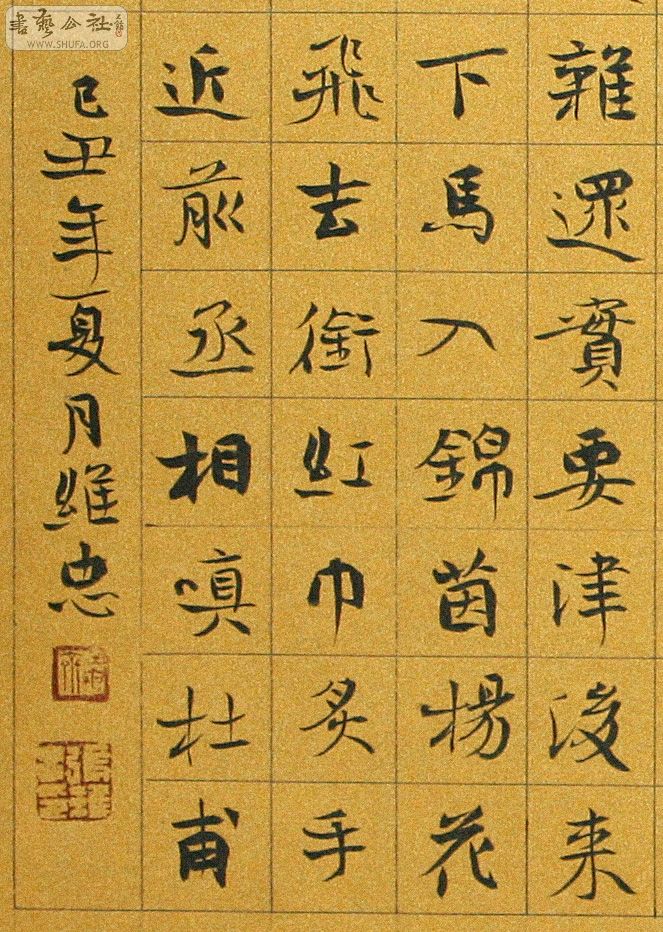 雜遝實要津後来
下馬入錦茵楊花
飛去銜紅巾炙手
近前丞相嗔杜甫
己丑年夏月維忠
書藝公社
WWW.SHUFA.ORG